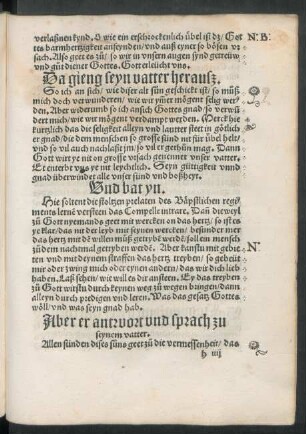 verlaßnen kynd. O wie ein erschrockenlich übel ist dz/ Got
tes barmhertzigkeit anfeynden/ vnd auß eyner so bösen vr
sach. Also geet es zů/ so wir in vnsern augen synd getreüw
vnd gůt diener Gottes. Gott erleücht vns.
Da gieng seyn vatter herausz.
So ich an sich/ wie diser alt sün geschickt ist/ so můß
mich doch verwunderen/ wie wir ymer mögent selig wer
den. Aber widerumb so ich ansich Gottes gnad/ so verwü
dert mich/ wie wir mögent verdampt werden. Merck hie
kurtzlich das die seligkeit alleyn vnd lautter steet in götlich
er gnad/ die dem menschen so grosse sünd nit für übel helt/
vnd so vil auch nachlaßt/ so vil er gethůn mag. Dann
Gott wirt ye nit on grosse vrsach genennet vnser vatter.
Er enterbt vns ye nit leychtlich. Seyn gültigkeit vnnd
gnad überwinder alle vnser sünd vnd boßheyt.
Vnd bat yn.
Hie soltent die stoltzen prelaten des Bäpstlichen regi
ments lernē versteen das Compelle intrare. Dañ dieweyl
zů Gott nyemands geet mit wercken on das hertz/ so ist es
ye klar/ das nit der leyb mit seynen wercken/ besunder mer
das hertz mit dē willen můß getrybē werdē/ sol ein mensch
zů dem nachtmal getryben werdē. Aber kanstu mit gebiet
ten vnd mit deynen straffen das hertz treyben/ so gebeüt
mir oder zwing mich oder eynen andern/ das wir dich lieb
haben. Laß sehen/ wie will es dir anston. Ey das treyben
zů Gott wirstu durch keynen weg zů wegen bringen/ dann
alleyn durch predigen vnd leren. Was das gesatz Gottes
wöll/ vnd was seyn gnad hab.
Aber er antwort vnd sprach zu
seynem vatter.
Allen sünden dises süns geet zů die vermessenheit/ das
h iiij
N: B:
N: